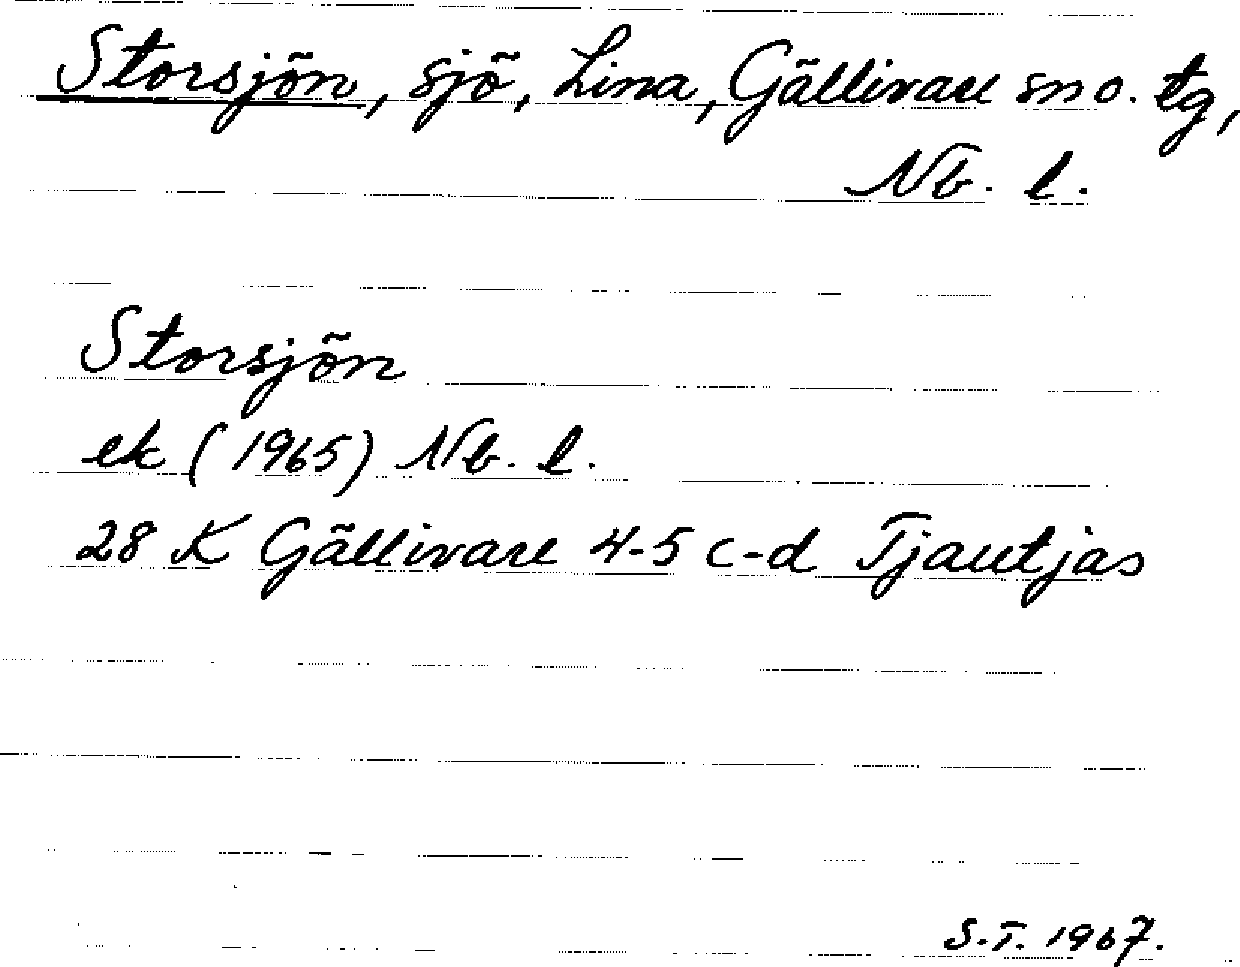 Storsjön, sjö, Lina, Gällivare sn o. tg,
Nb. l.
Storsjön
ek (1965) Nb. l.
28 K Gällivare 4-5 c-d Tjautjas
S.T. 1967.